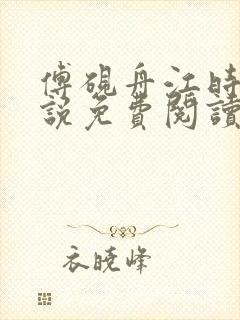 傅硯舟江時
說免費閱讀
衣曉峰